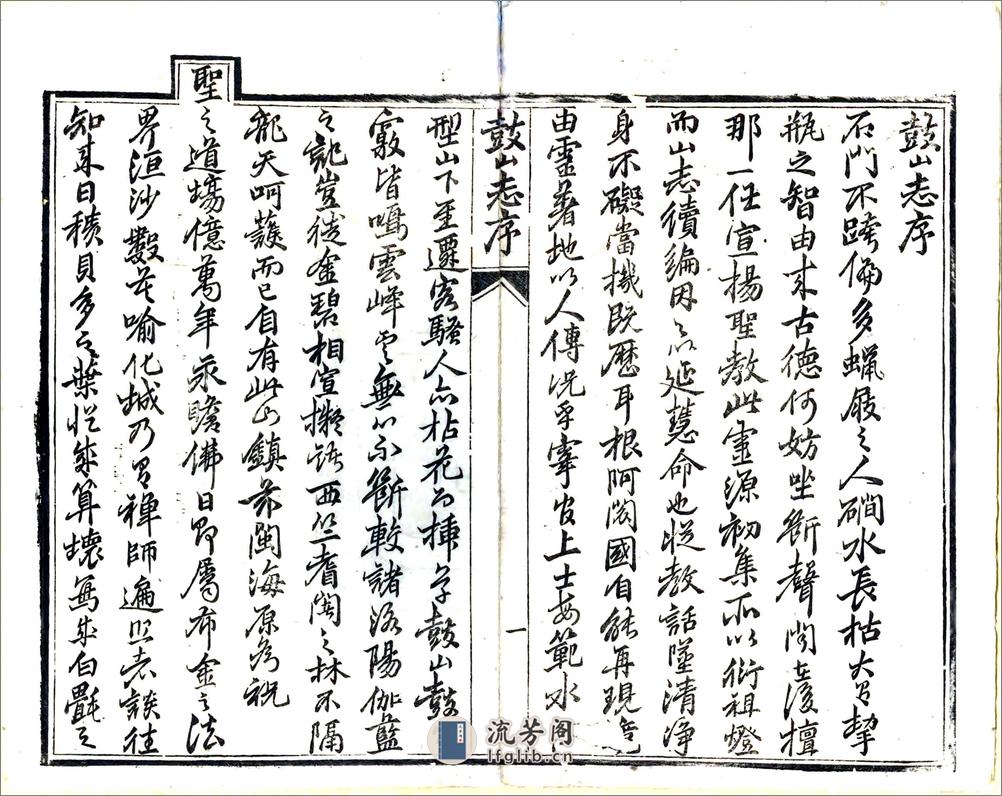 鼓山志序
石門不跨偏多蠟屐之人磵水長枯大有挈
瓶之智由來古德何妨坐斷聲聞在後擅
那一任宣揚聖教此靈源初集所以衍祖燈
而山志續編因之以延慧命也從教話墮清淨
身不礙當機既歷耳根阿閦國自能再現
由靈著地以人傳況乎宰官上士安範水
鼓山志序
一
型山下至遷客騷人亦拈花而插草鼓山鼓
響皆鳴雲峰雲無以不斷較諸洛陽伽藍
之記豈徒金碧相宣擬諸西竺耆闍之林不隔
龍天呵護而已自有此山鎮茲閩海原為祝
聖之道場億萬年永瞻佛日即屬布金之法
界洹沙數莫喻化城乃有禪師遍照者談往
知來日積貝多之葉從成算壞寫成白氎之
流芳阁
lfglib.cn